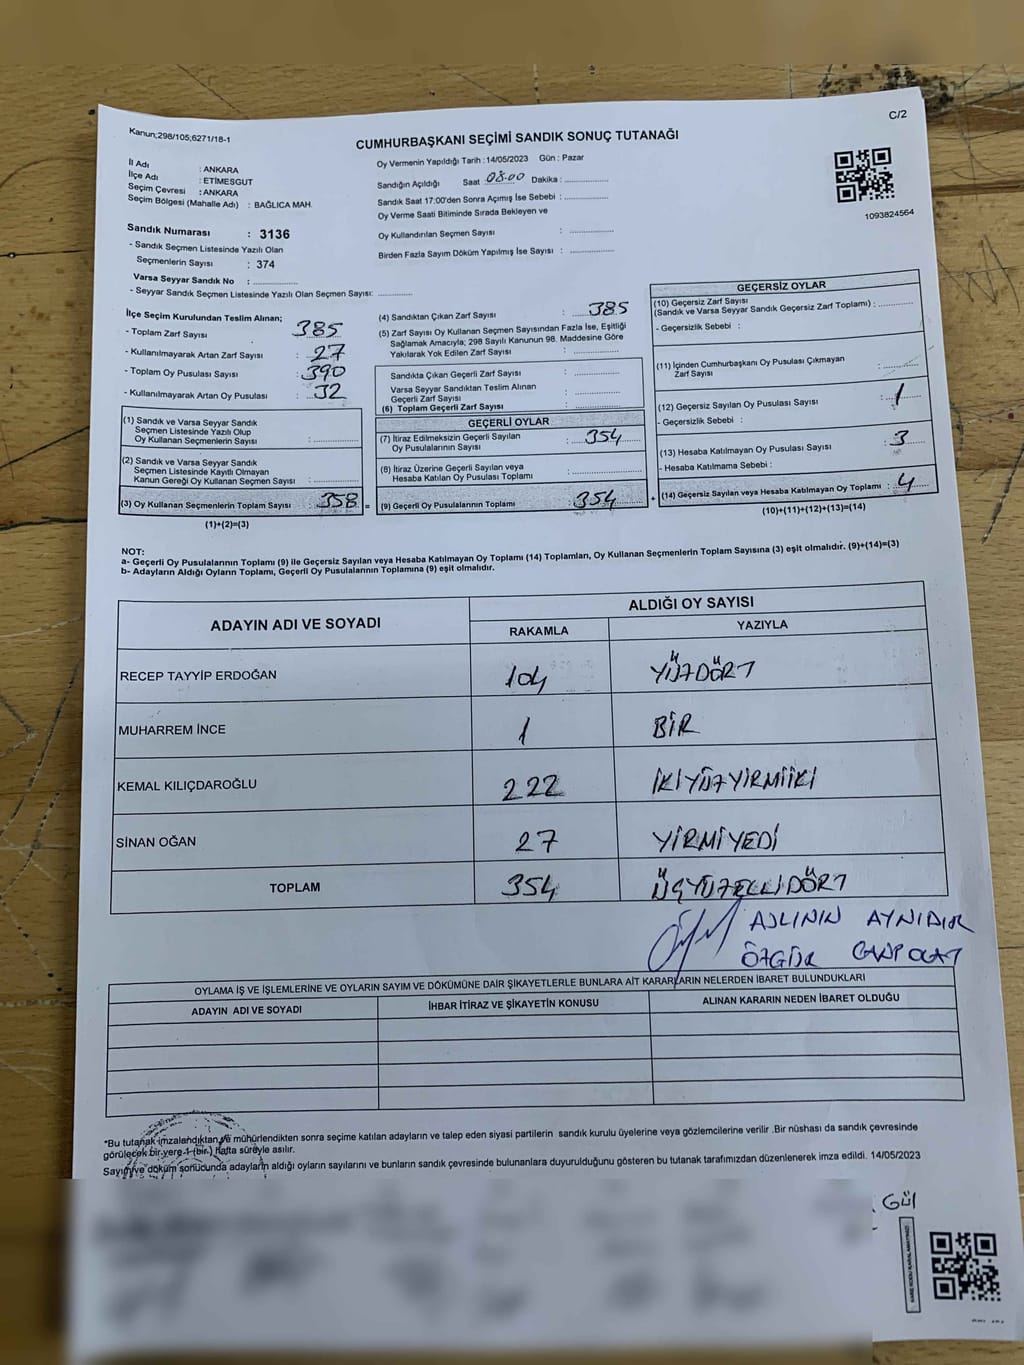 Kanun;298/105;6271/18-1
C/2
CUMHURBAŞKANI SEÇİMİ SANDIK SONUÇ TUTANAĞI
İl Adı : ANKARA
İlçe Adı : ETİMESGUT
Seçim Çevresi : ANKARA
Seçim Bölgesi (Mahalle Adı) : BAĞLICA MAH.
Sandık Numarası : 3136
- Sandık Seçmen Listesinde Yazılı Olan
Seçmenlerin Sayısı : 374
Varsa Seyyar Sandık No : ..............
- Seyyar Sandık Seçmen Listesinde Yazılı Olan Seçmen Sayısı: ..............
Oy Vermenin Yapıldığı Tarih : 14/05/2023 Gün : Pazar
Sandığın Açıldığı Saat 08.00 Dakika : ..............
Sandık Saat 17:00'den Sonra Açımış İse Sebebi : ..............
Oy Verme Saati Bitiminde Sırada Bekleyen ve
Oy Kullandırılan Seçmen Sayısı : ..............
Birden Fazla Sayım Döküm Yapılmış İse Sayısı : ..............
1093824564
İlçe Seçim Kurulundan Teslim Alınan;
- Toplam Zarf Sayısı : 385
- Kullanılmayarak Artan Zarf Sayısı : 27
- Toplam Oy Pusulası Sayısı : 390
- Kullanılmayarak Artan Oy Pusulası : 32
(1) Sandık ve Varsa Seyyar Sandık
Seçmen Listesinde Yazılı Olup
Oy Kullanan Seçmenlerin Sayısı : ..............
(2) Sandık ve Varsa Seyyar Sandık
Seçmen Listesinde Kayıtlı Olmayan
Kanun Gereği Oy Kullanan Seçmen Sayısı : ..............
(3) Oy Kullanan Seçmenlerin Toplam Sayısı : 358 =
(1)+(2)=(3)
(4) Sandıktan Çıkan Zarf Sayısı : 385
(5) Zarf Sayısı Oy Kullanan Seçmen Sayısından Fazla İse, Eşitliği
Sağlamak Amacıyla; 298 Sayılı Kanunun 98. Maddesine Göre
Yakılarak Yok Edilen Zarf Sayısı : ..............
Sandıkta Çıkan Geçerli Zarf Sayısı : ..............
Varsa Seyyar Sandıktan Teslim Alınan
Geçerli Zarf Sayısı : ..............
(6) Toplam Geçerli Zarf Sayısı : ..............
GEÇERLİ OYLAR
(7) İtiraz Edilmeksizin Geçerli Sayılan : 354
Oy Pusulalarının Sayısı
(8) İtiraz Üzerine Geçerli Sayılan veya
Hesaba Katılan Oy Pusulası Toplamı : ..............
(9) Geçerli Oy Pusulalarının Toplamı 354 +
GEÇERSİZ OYLAR
(10) Geçersiz Zarf Sayısı
(Sandık ve Varsa Seyyar Sandık Geçersiz Zarf Toplamı) : ..............
- Geçersizlik Sebebi :
(11) İçinden Cumhurbaşkanı Oy Pusulası Çıkmayan
Zarf Sayısı : ..............
(12) Geçersiz Sayılan Oy Pusulası Sayısı : 1
- Geçersizlik Sebebi :
(13) Hesaba Katılmayan Oy Pusulası Sayısı : 3
- Hesaba Katılmama Sebebi :
(14) Geçersiz Sayılan veya Hesaba Katılmayan Oy Toplamı : 4
(10)+(11)+(12)+(13)=(14)
NOT:
a- Geçerli Oy Pusulalarının Toplamı (9) ile Geçersiz Sayılan veya Hesaba Katılmayan Oy Toplamı (14) Toplamları, Oy Kullanan Seçmenlerin Toplam Sayısına (3) eşit olmalıdır. (9)+(14)=(3)
b- Adayların Aldığı Oyların Toplamı, Geçerli Oy Pusulalarının Toplamına (9) eşit olmalıdır.
ADAYIN ADI VE SOYADI ALDIĞI OY SAYISI
RAKAMLA YAZIYLA
RECEP TAYYİP ERDOĞAN 104 YÜZDÖRT
MUHARREM İNCE 1 BİR
KEMAL KILIÇDAROĞLU 222 İKİYÜZYİRMİİKİ
SİNAN OĞAN 27 YİRMİYEDİ
TOPLAM 354 ÜÇYÜZELLİDÖRT
ASLININ AYNIDIR
ÖZGÜR CANPOLAT
OYLAMA İŞ VE İŞLEMLERİNE VE OYLARIN SAYIM VE DÖKÜMÜNE DAİR ŞİKAYETLERLE BUNLARA AİT KARARLARIN NELERDEN İBARET BULUNDUKLARI
ADAYIN ADI VE SOYADI İHBAR İTİRAZ VE ŞİKAYETİN KONUSU ALINAN KARARIN NEDEN İBARET OLDUĞU
*Bu tutanak imzalandıktan ve mühürlendikten sonra seçime katılan adayların ve talep eden siyasi partilerin sandık kurulu üyelerine veya gözlemcilerine verilir .Bir nüshası da sandık çevresinde
görülecek bir yere 1 (bir) hafta süreyle asılır.
Sayım ve döküm sonucunda adayların aldığı oyların sayılarını ve bunların sandık çevresinde bulunanlara duyurulduğunu gösteren bu tutanak tarafımızdan düzenlenerek imza edildi. 14/05/2023
Gül